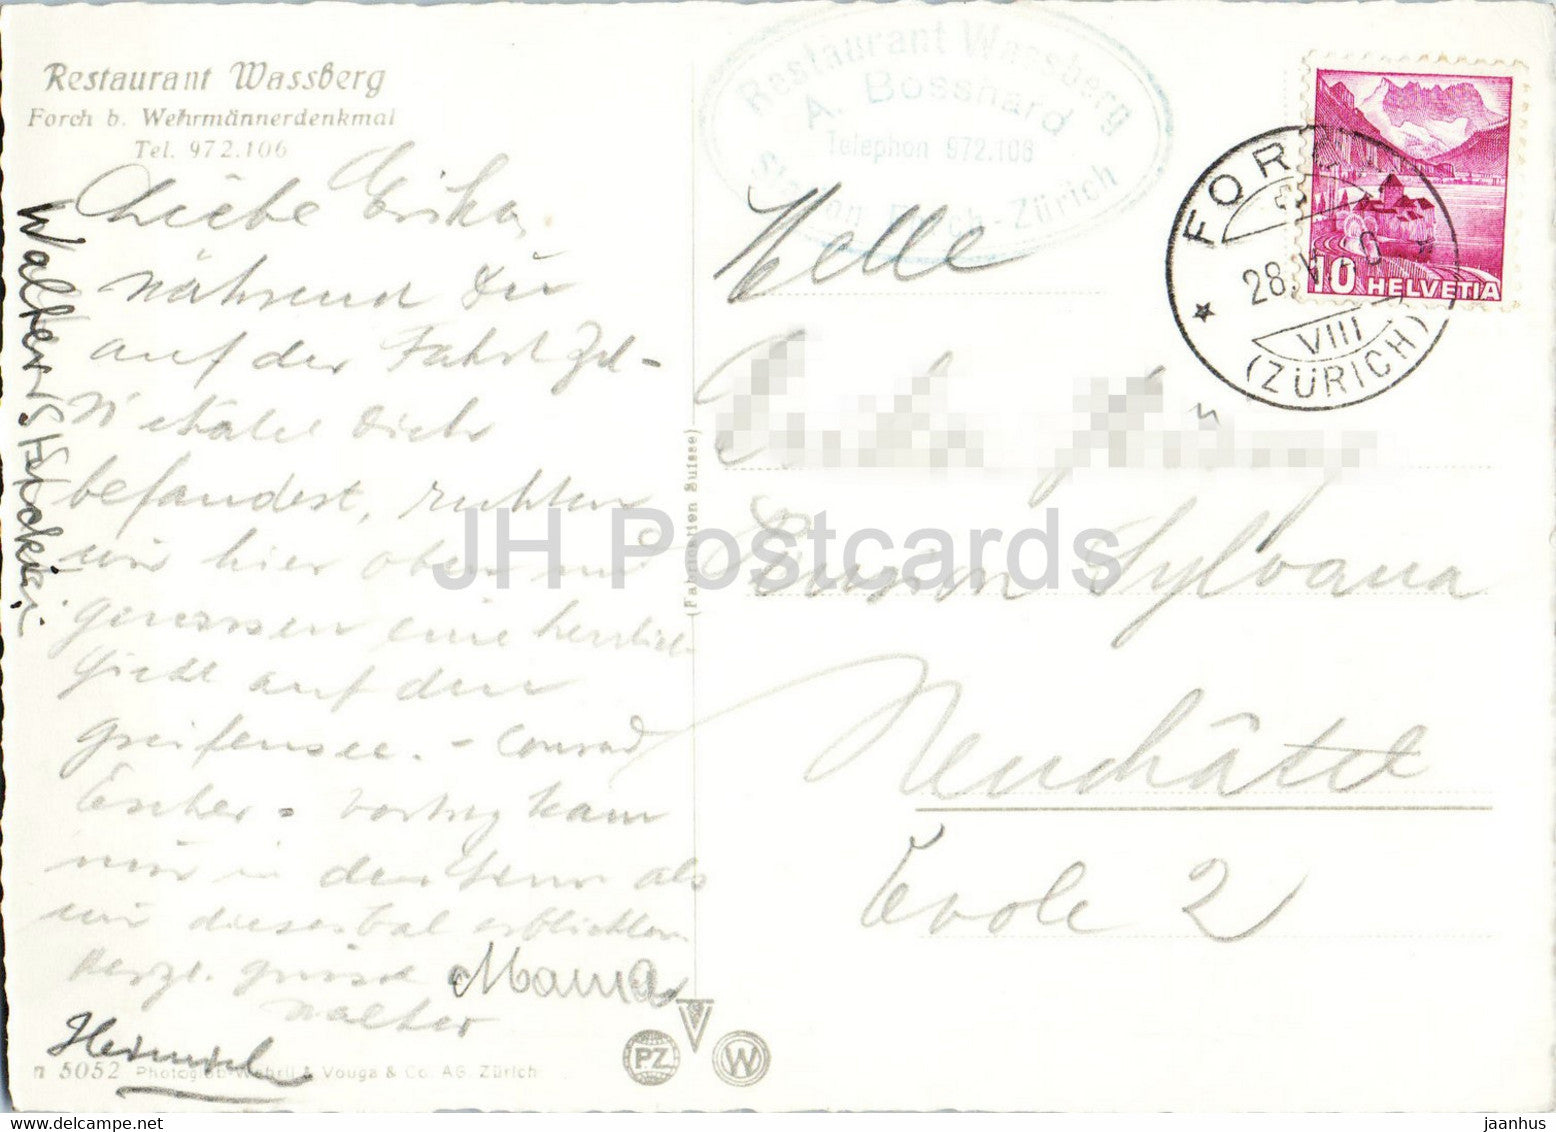 Restaurant Wassberg
Forch b. Wehrmännerdenkmal
Tel. 972.106
Liebe Erika,
während Du
auf der Fahrt
Dich
befandest, ruhten
wir hier oben und
geniessen eine herrliche
Sicht auf den
Greifensee. - Conrad
Escher - Vortrag kam
mir in den Sinn als
wir dieses Tal erblickten.
Herzl. Grüsse
Walter
Mama
Heinrich
Walter Stückeli
n 5052 Photoglob-Wehrli & Vouga & Co. AG. Zürich
(Fabrication Suisse)
PZ
W
Restaurant Wassberg
A. Bosshard
Telephon 972.106
Station Forch-Zürich
FORCH
28. V
VIII
(ZÜRICH)
10 HELVETIA
Melle
Pension Sylvana
Neuchâtel
Evole 2
JH Postcards
delcampe.net
jaanhus